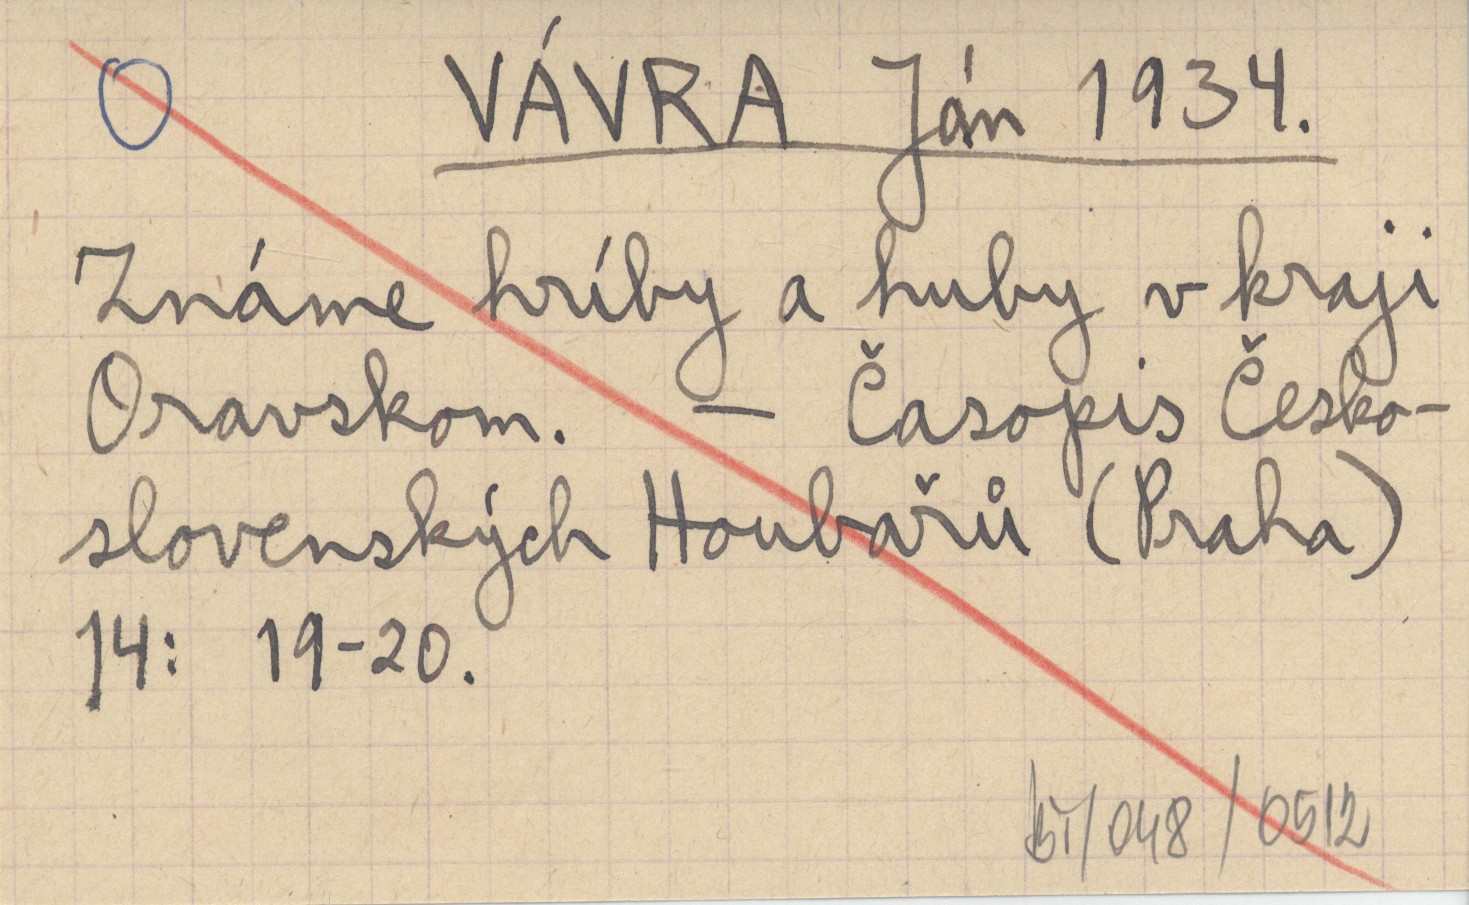 O
VÁVRA Ján 1934.
Známe hríby a huby v kraji
Oravskom. — Časopis Česko-
slovenských Houbařů (Praha)
14: 19-20.
/048/0512